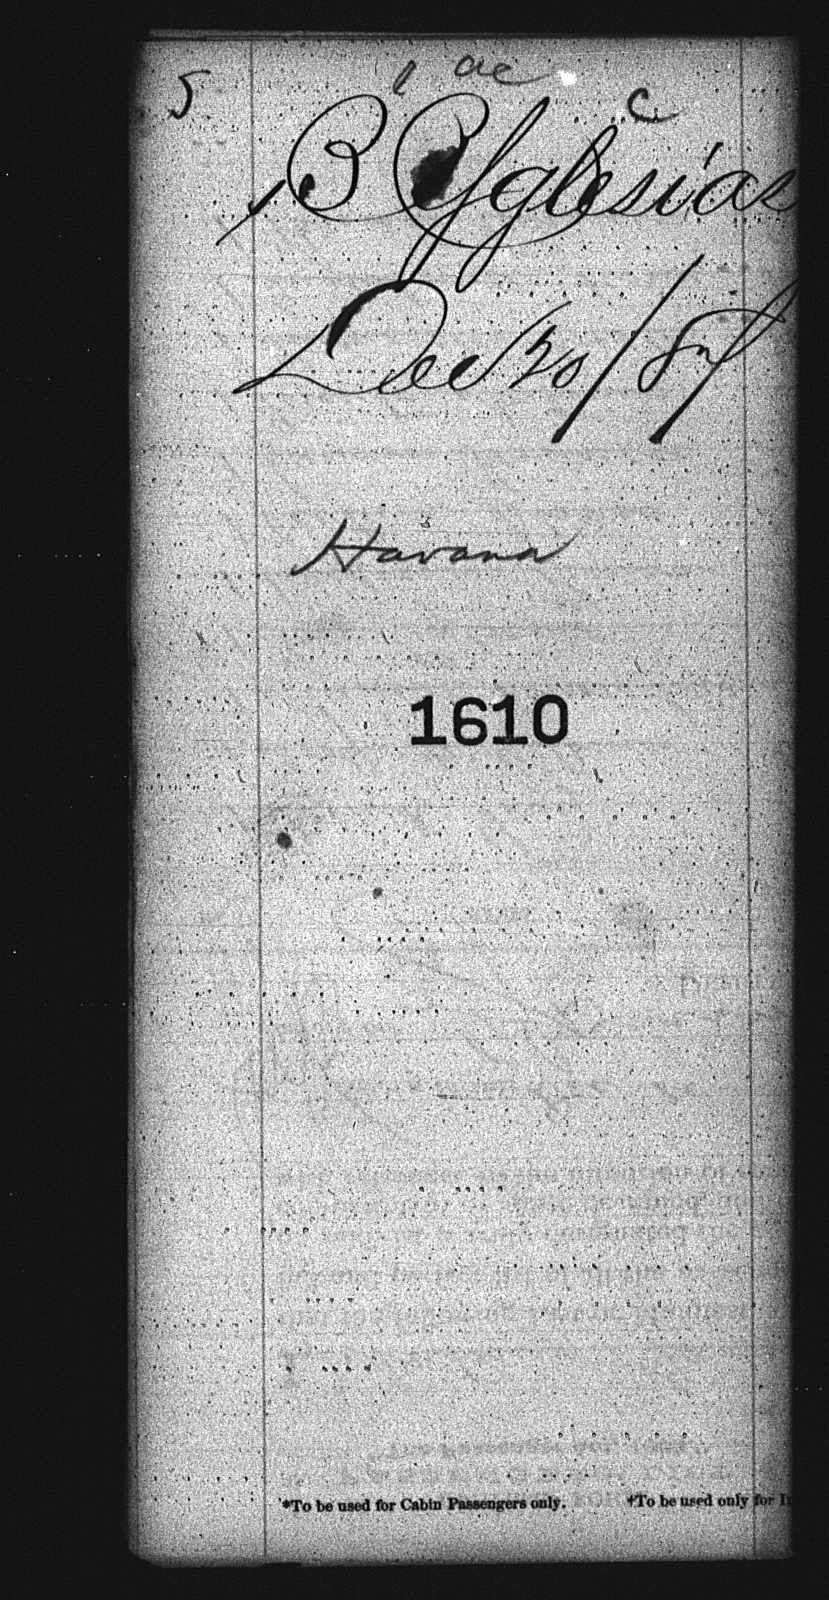 5 ac C
B Yglesias
Dec 30/87
Havana
1610
*To be used for Cabin Passengers only. †To be used only for